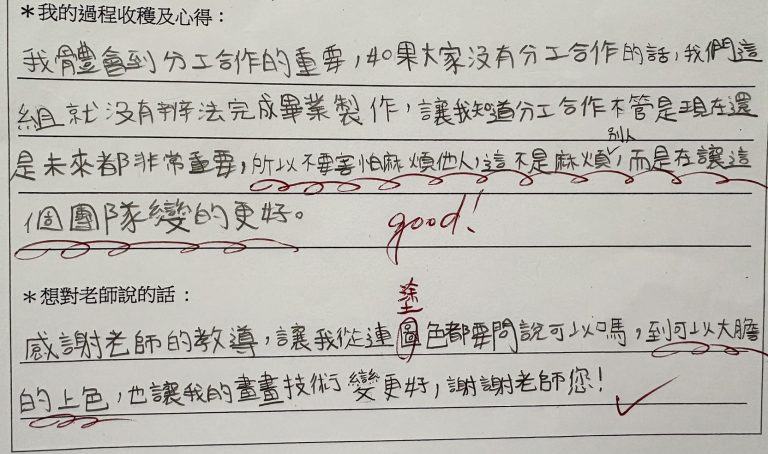 ＊我的過程收穫及心得：
我體會到分工合作的重要，如果大家沒有分工合作的話，我們這
組就沒有辦法完成畢業製作，讓我知道分工合作不管是現在還
別人
是未來都非常重要，所以不要害怕麻煩他人，這不是麻煩，而是在讓這
個團隊變的更好。
good!
＊想對老師說的話：
塗
感謝老師的教導，讓我從連圖色都要問說可以嗎，到可以大膽
的上色，也讓我的畫畫技術變更好，謝謝老師您！